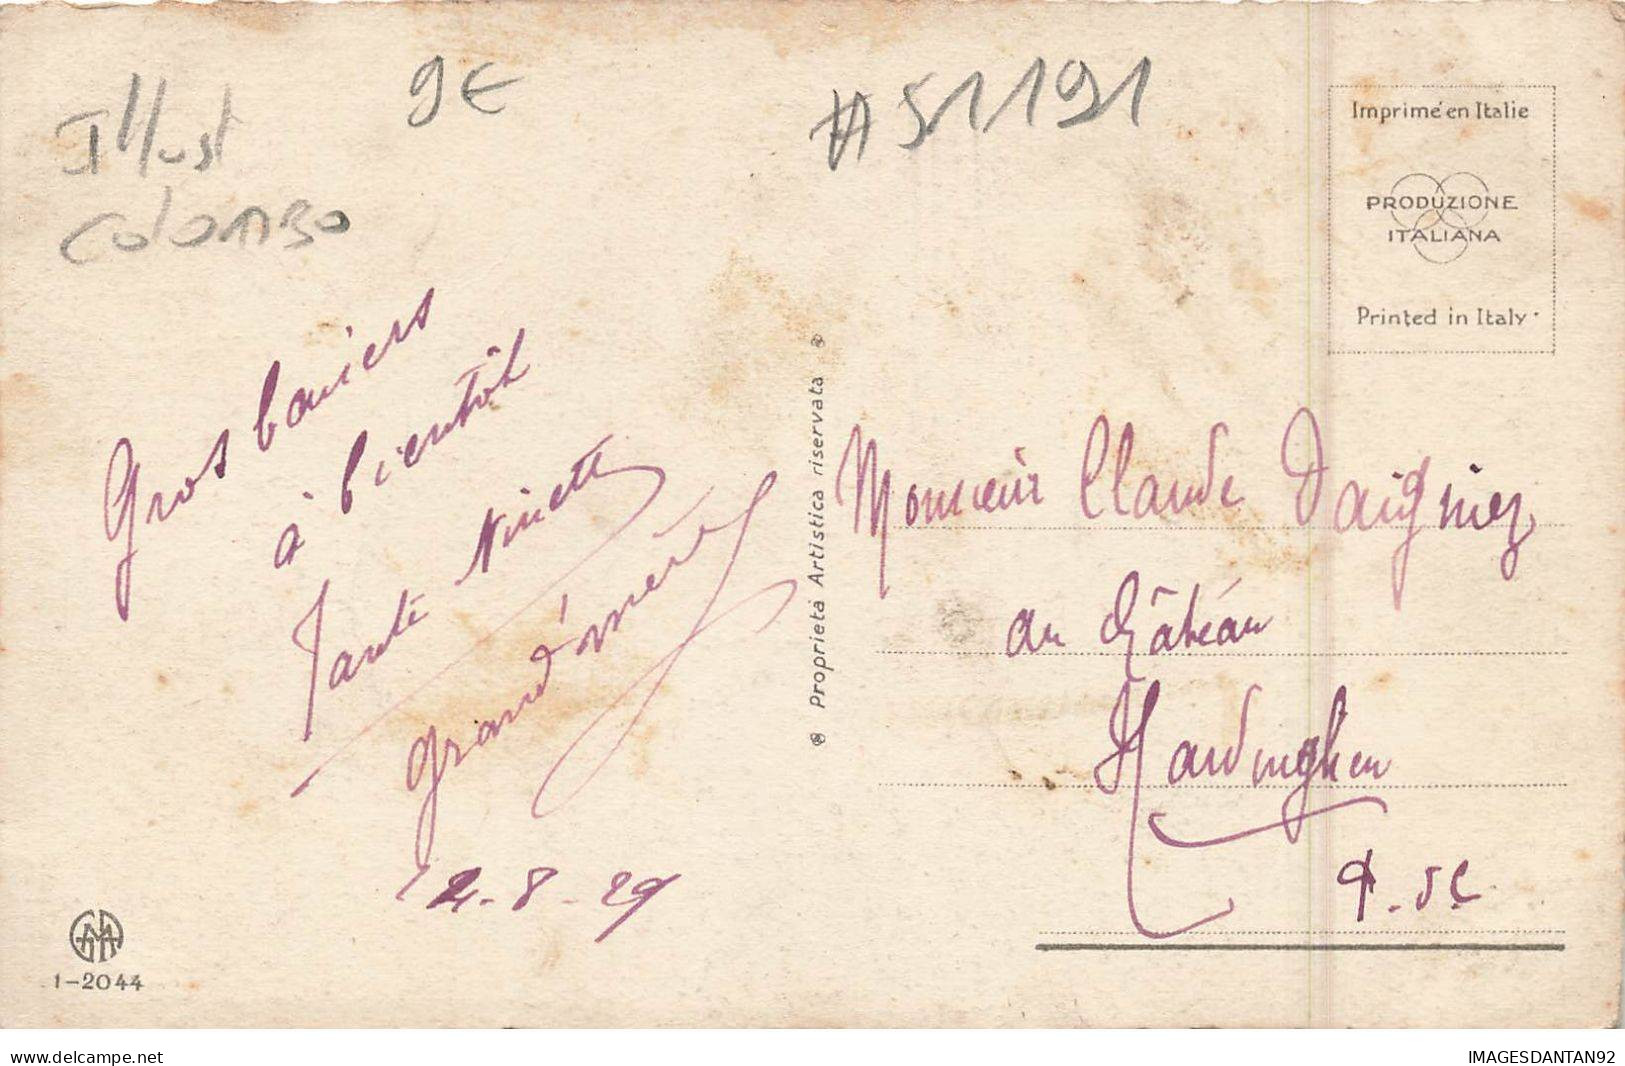 Illust
Colombo
9€
#51191
Imprimé en Italie
PRODUZIONE
ITALIANA
Printed in Italy
Gros baisers
à bientôt
Tante Ninette
grand'mère
12-8-29
Proprietà Artistica riservata
Monsieur Claude
au Château
Hardinghen
P. de C.
1-2044
delcampe.net
IMAGESDANTAN92